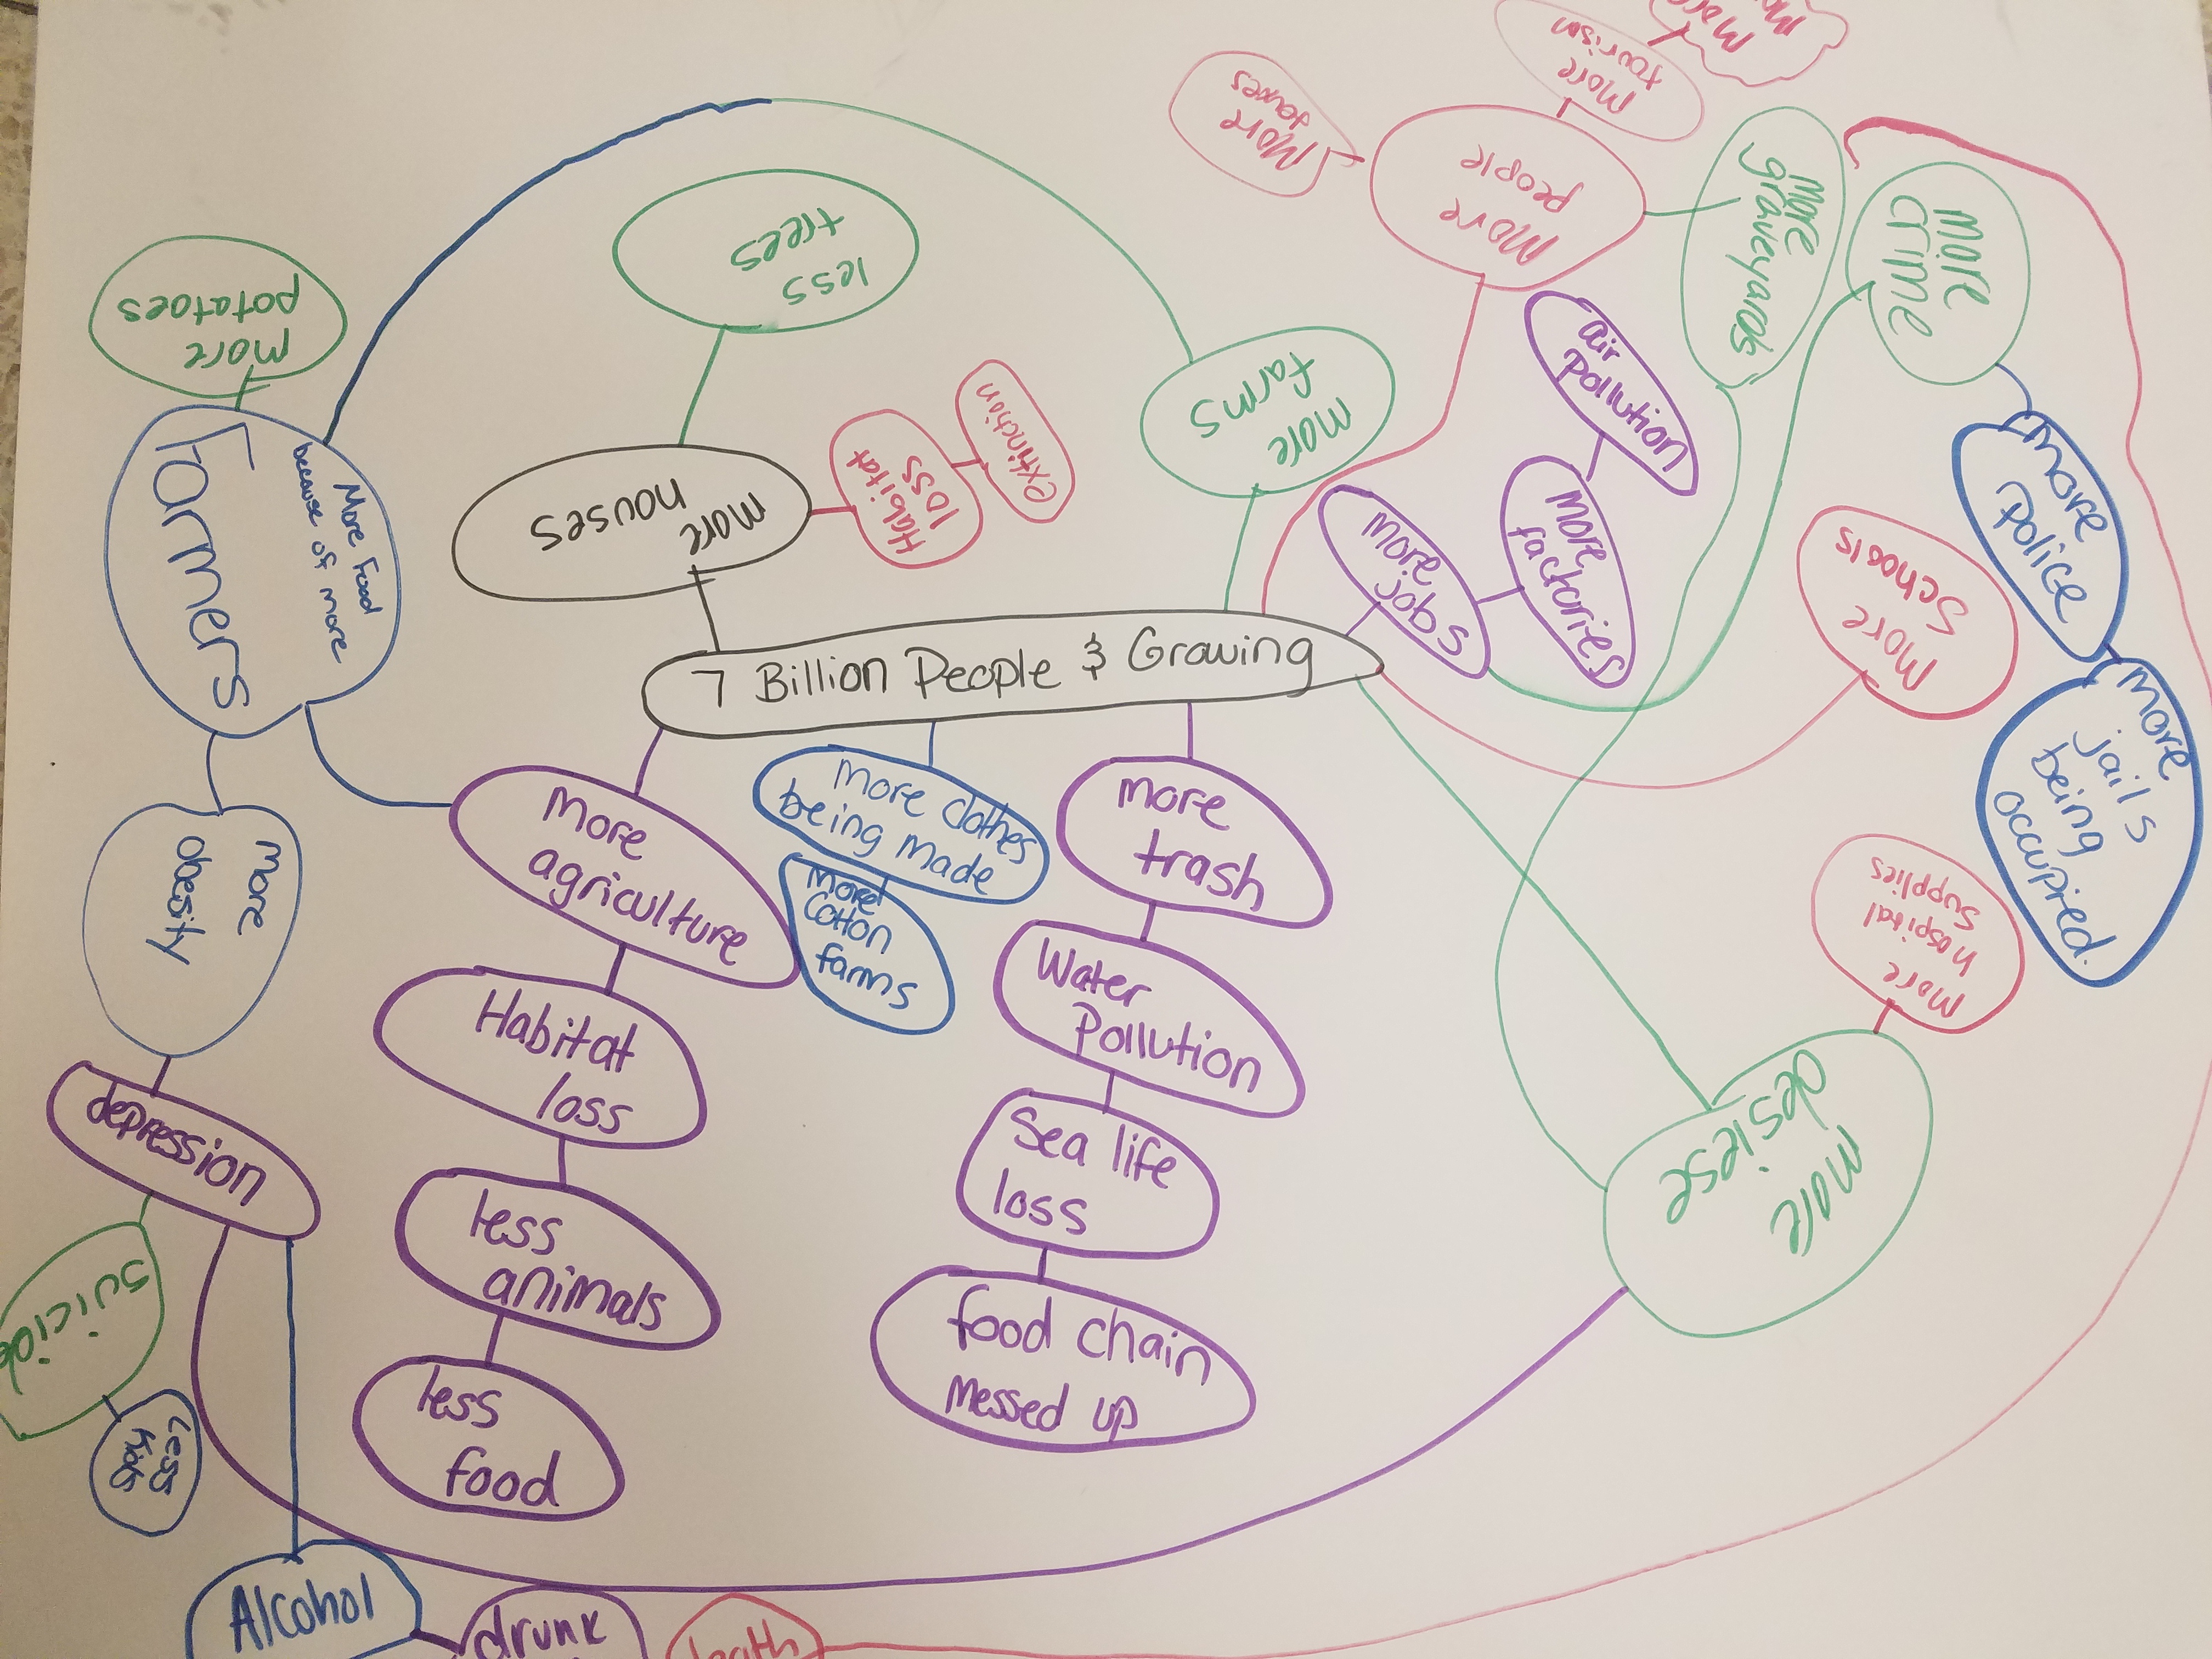 More
More
tourism
More
taxes
More
people
More
graveyards
More
crime
less
trees
more
potatoes
air
Pollution
more
farms
extinction
Habitat
loss
More Food
because of more
Farmers
more
houses
More
factories
More
jobs
more
Police
More
Schools
7 Billion People & Growing
more
jail's
being
occupired.
More
agriculture
More clothes
being made
More
Cotton
farms
more
trash
more
obesity
more
hospital
supplies
Water
Pollution
Habitat
loss
depression
Sea life
loss
more
desiese
less
animals
food chain
messed up
less
food
Less
Kids
Alcohol
drunk